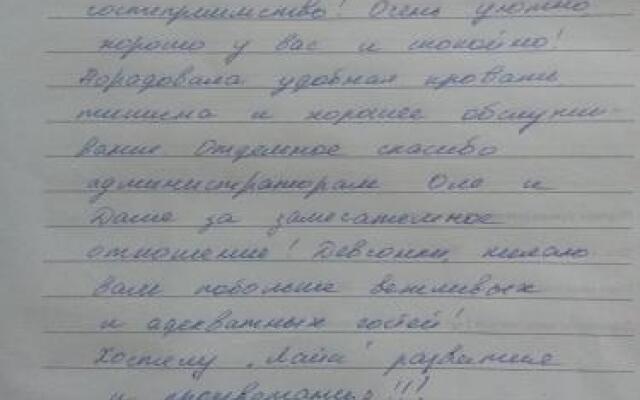 гостеприимство! Очень уютно,
хорошо у вас и спокойно!
Порадовала удобная кровать
тишина и хорошее обслужи-
вание Отдельное спасибо
администраторам Оле и
Даше за замечательное
отношение! Девчонки, желаю
вам побольше вежливых
и адекватных гостей!
Хостелу "Лайм" развития
и процветания!!!